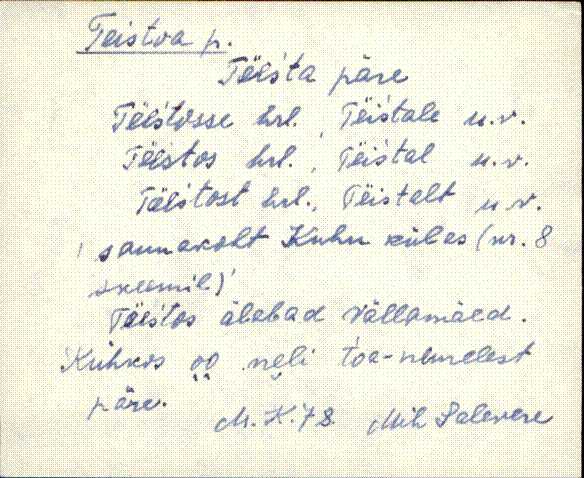 Teistva p.
Tëis'ta päre
Tëis'tosse hrl., Tëis'tale u.v.
Tëis'tos hrl., Tëis'tal u.v.
Tëis'tost hrl., Tëistalt u.v.
'saunakoht Kuhu külas (nr. 8
skeemil)'
Tëis'tos ǟlabad Vällamäed.
oo neli toa-nimelest
päre.
M.K.78 Mih Salevere